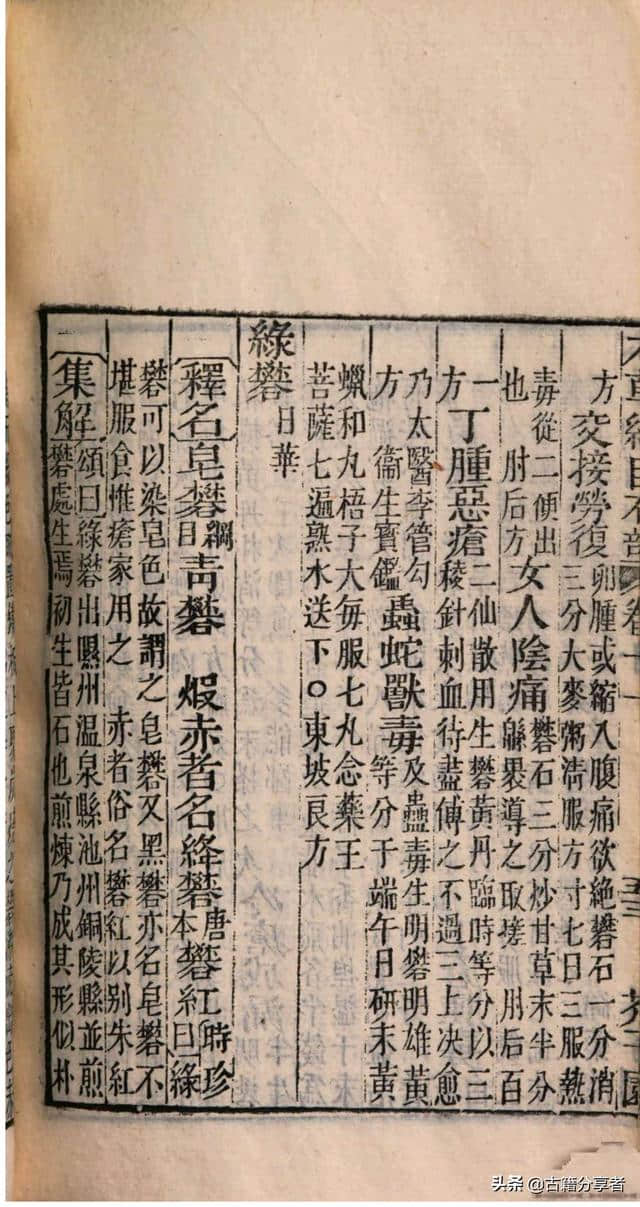 本草綱目石部 卷十一 芥子園
方 交接勞復 卵腫或縮入腹痛欲絶礬石一分消
三分大麥粥清服方寸七日三服熱
毒從二便出
也 肘后方 女人陰痛 礬石三分炒甘草末半分
緜裹導之取瘥 肘后百
一 二仙散用生礬黃丹臨時等分以三
方 丁腫惡瘡 稜針刺血待盡傅之不過三上决愈
乃太醫李管勾
方 衞生寳鑑 蟲蛇獸毒 及蠱毒生明礬明雄黃
等分于端午日研末黃
蠟和丸梧子大每服七丸念藥王
菩薩七遍熟水送下○東坡良方
綠礬 日華
釋名 皂礬 綱目 青礬 煅赤者名絳礬 唐本 礬紅 時珍曰綠
礬可以染皂色故謂之皂礬又黑礬亦名皂礬不
堪服食惟瘡家用之 赤者俗名礬紅以别朱紅
集解 頌曰綠礬出隰州溫泉縣池州銅陵縣並煎
礬處生焉初生皆石也煎煉乃成其形似朴
头条@古籍分享者